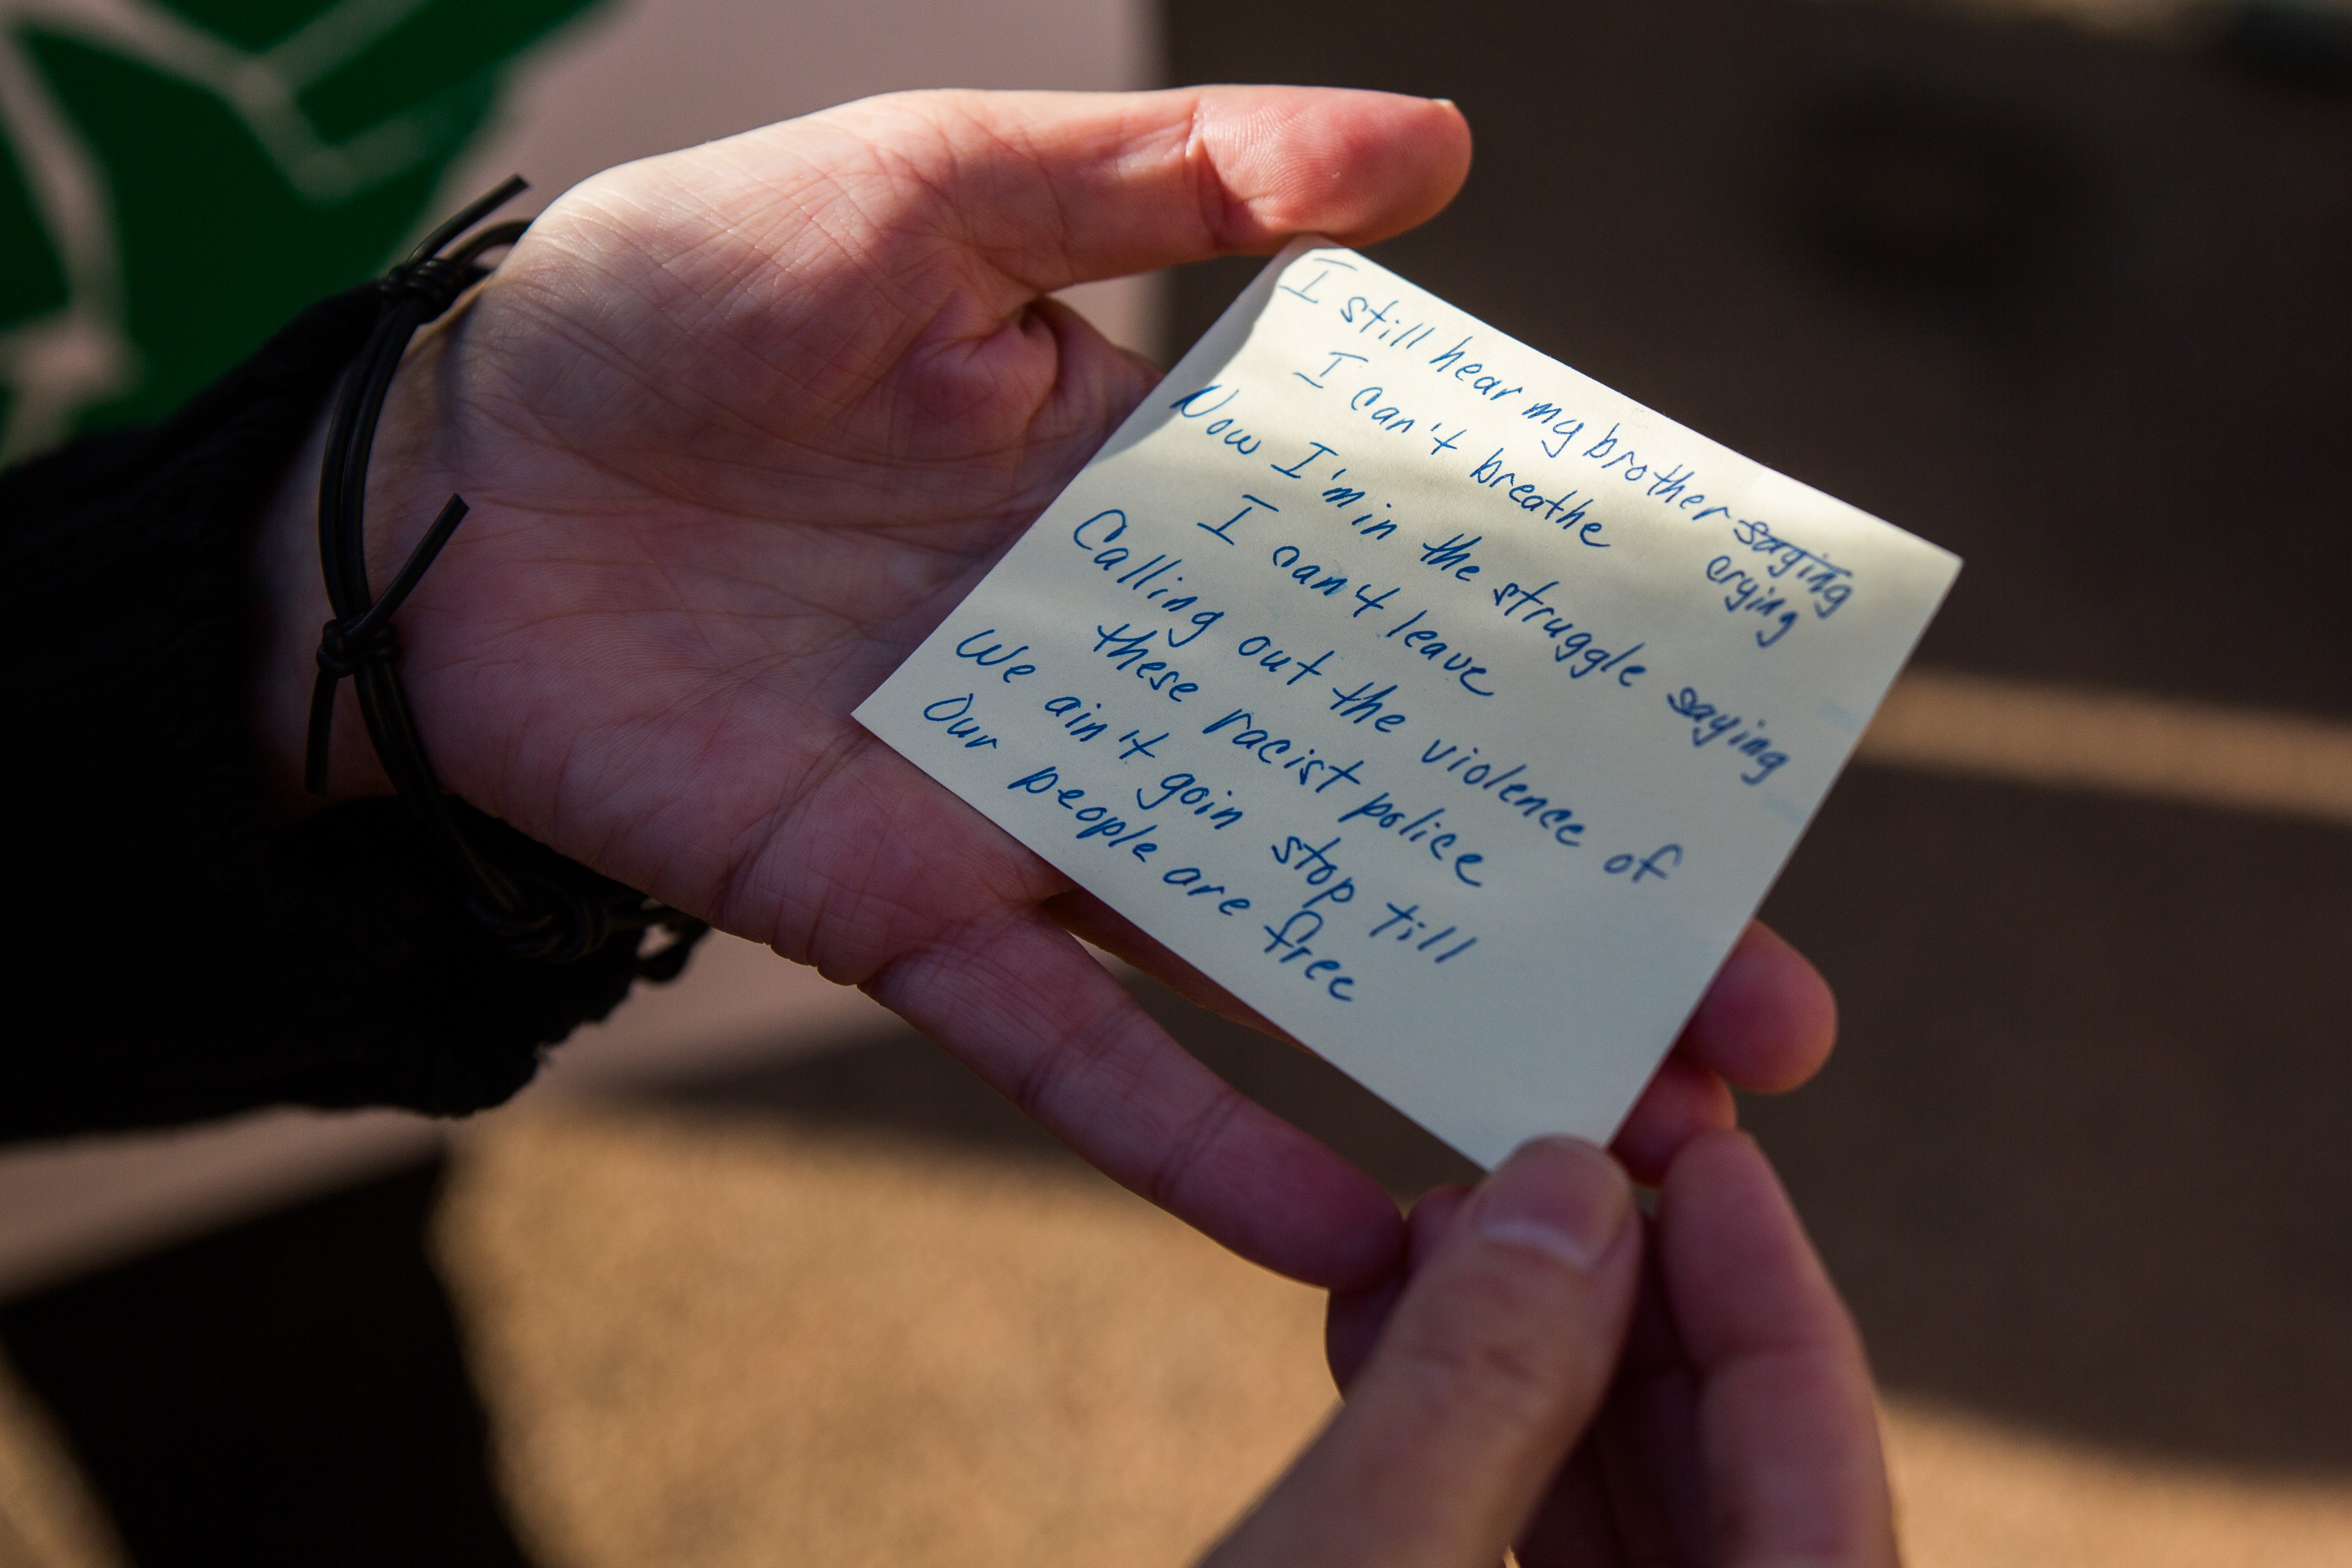 I still hear my brother saying
crying
I can't breathe
Now I'm in the struggle saying
I can't leave
Calling out the violence of
these racist police
We ain't goin stop till
Our people are free